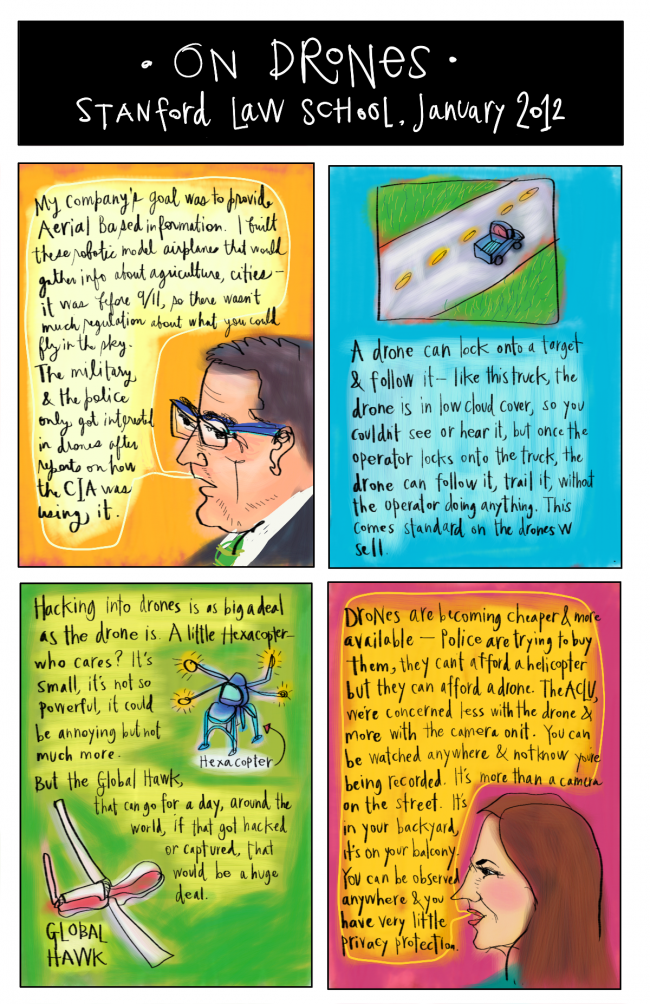 · ON DRONES ·
STANford LAW SCHOOL, January 2012
My company's goal was to provide
Aerial Based information. I built
these robotic model airplanes that would
gather info about agriculture, cities—
it was before 9/11, so there wasn't
much regulation about what you could
fly in the sky.
The military
& the police
only got interested
in drones after
reports on how
the CIA was
using it.
A drone can lock onto a target
& follow it— like this truck, the
drone is in low cloud cover, so you
couldnt see or hear it, but once the
operator locks onto the truck, the
drone can follow it, trail it, without
the operator doing anything. This
comes standard on the drones w
sell.
Hacking into drones is as big a deal
as the drone is. A little Hexacopter—
who cares? It's
small, it's not so
powerful, it could
be annoying but not
much more.
Hexacopter
But the Global Hawk,
that can go for a day, around the
world, if that got hacked
or captured, that
would be a huge
deal.
GLOBAL
HAWK
DroNes are becoming cheaper & more
available — Police are trying to buy
them, they cant afford a helicopter
but they can afford a drone. The ACLU,
we're concerned less with the drone &
more with the camera on it. You can
be watched anywhere & not know you're
being recorded. It's more than a camera
on the street. It's
in your backyard,
it's on your balcony.
You can be observed
anywhere & you
have very little
privacy protection.